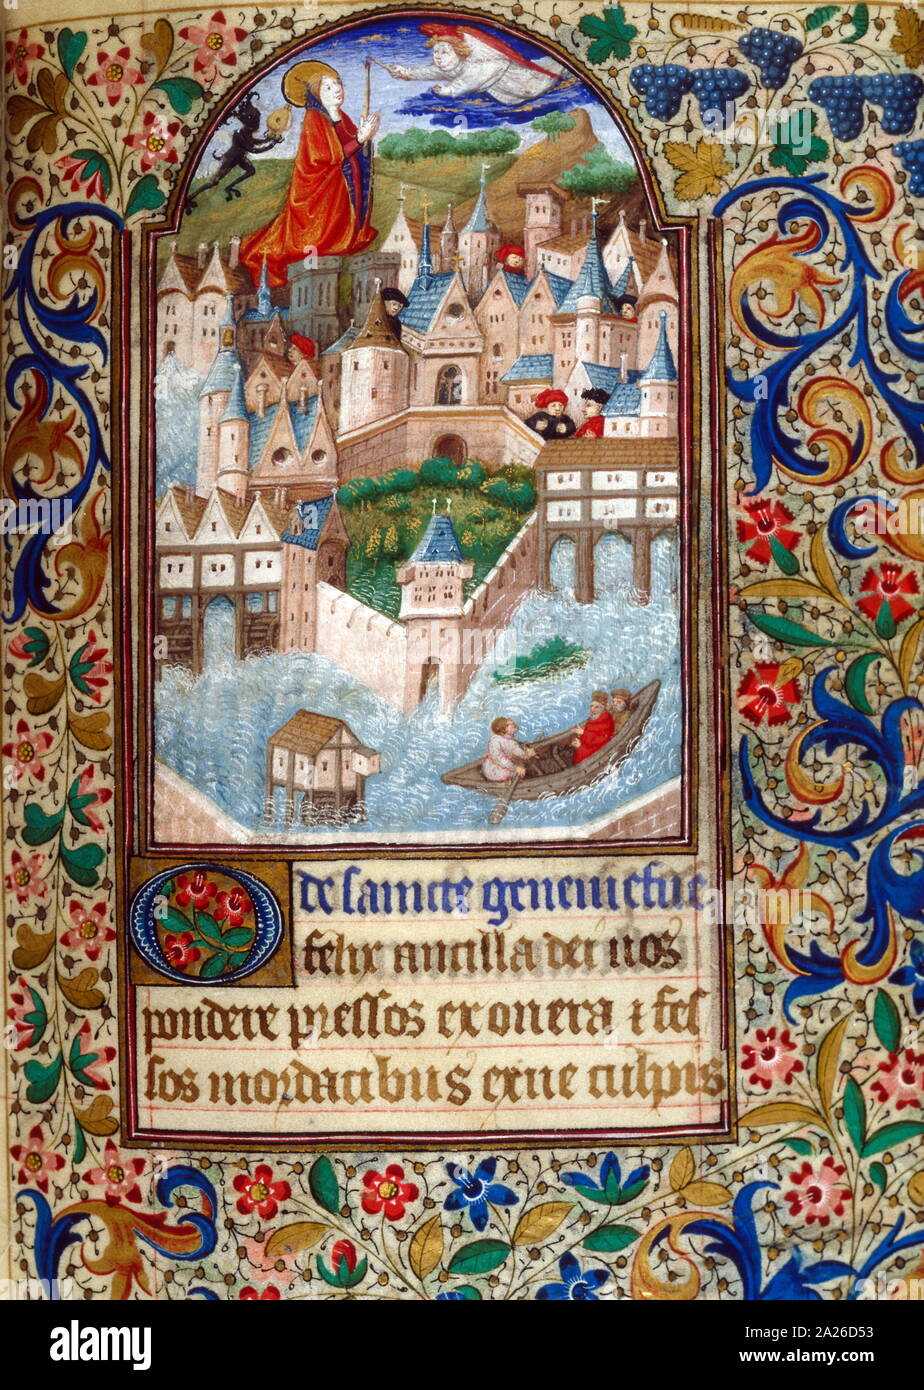 De sancte genenieffue
O felix ancilla dei nos
pondere pressos exonera & fes
sos mordacibus exue culpis
alamy
Image ID: 2A26D53
www.alamy.com